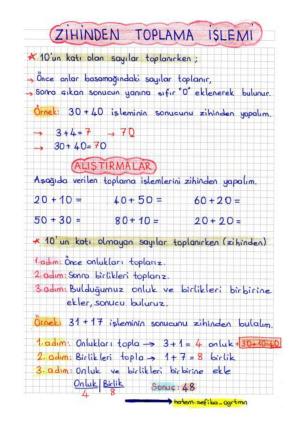 ZİHİNDEN TOPLAMA İŞLEMİ
* 10'un katı olan sayılar toplanırken ;
→ Önce onlar basamağındaki sayılar toplanır,
→ sonra çıkan sonucun yanına sıfır "0" eklenerek bulunur.
Örnek: 30 + 40 işleminin sonucunu zihinden yapalım.
→ 3 + 4 = 7 → 70
→ 30 + 40 = 70
ALIŞTIRMALAR
Aşağıda verilen toplama işlemlerini zihinden yapalım.
20 + 10 = 40 + 50 = 60 + 20 =
50 + 30 = 80 + 10 = 20 + 20 =
* 10'un katı olmayan sayılar toplanırken (zihinden)
1. adım: Önce onlukları toplarız.
2. adım: Sonra birlikleri toplarız.
3. adım: Bulduğumuz onluk ve birlikleri birbirine
ekler, sonucu buluruz.
Örnek: 31 + 17 işleminin sonucunu zihinden bulalım.
1. adım: Onlukları topla → 3 + 1 = 4 onluk 30+10=40
2. adım: Birlikleri topla → 1 + 7 = 8 birlik
3. adım: Onluk ve birlikleri birbirine ekle
Onluk Birlik Sonuç: 48
4 8